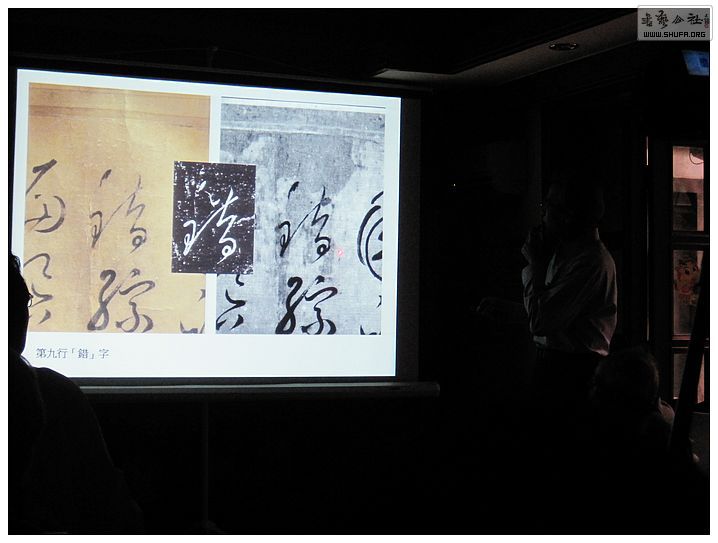 書藝公社
WWW.SHUFA.ORG
錯綜
錯
錯綜
第九行「錯」字